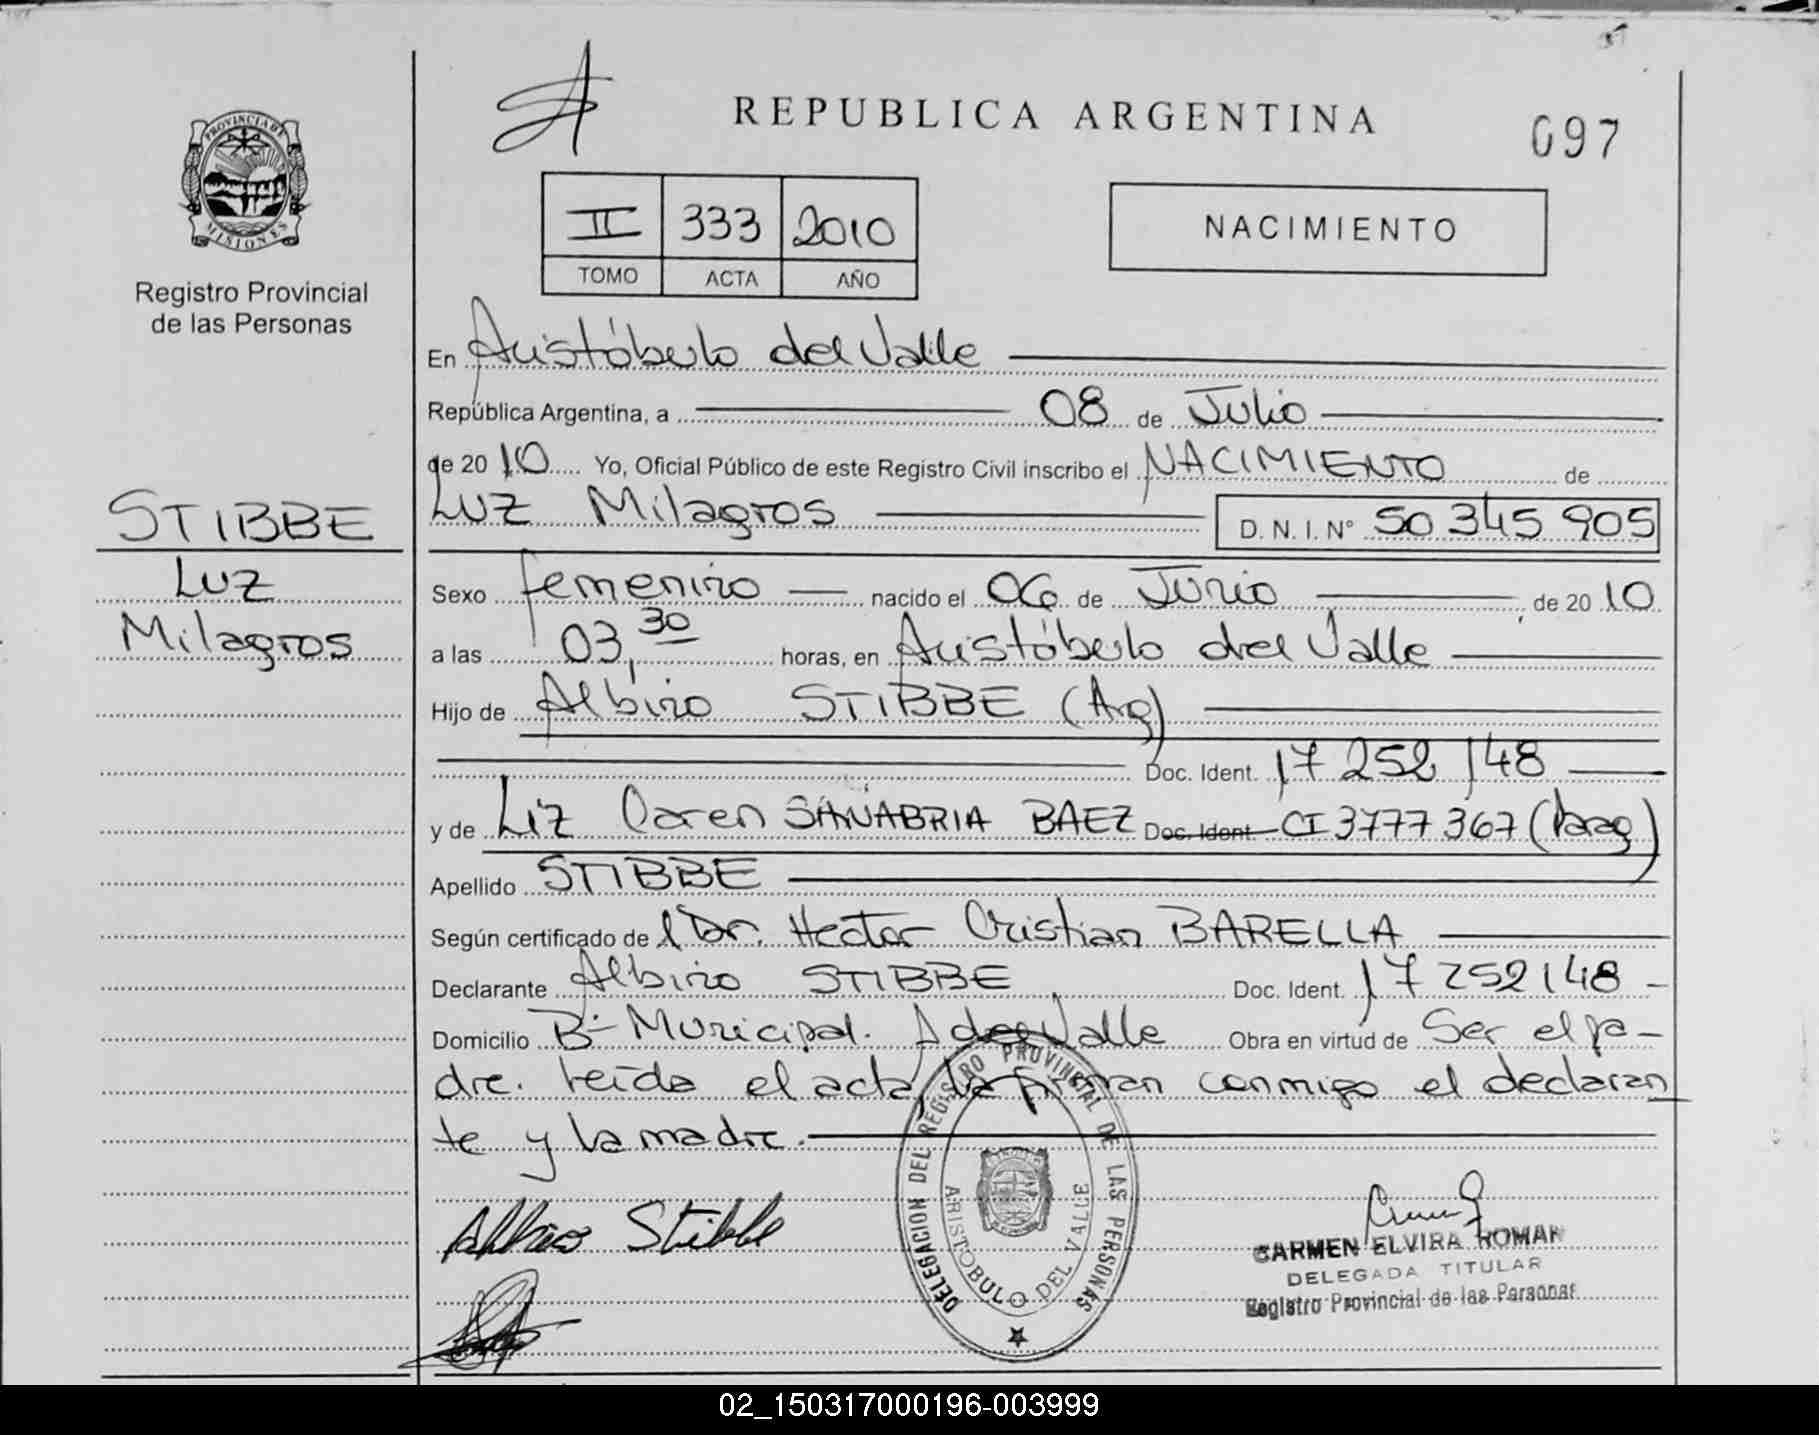 REPUBLICA ARGENTINA
097
PROVINCIA DE
MISIONES
Registro Provincial
de las Personas
II 333 2010
TOMO ACTA AÑO
NACIMIENTO
En Aristóbulo del Valle
República Argentina, a 08 de Julio
de 2010 Yo, Oficial Público de este Registro Civil inscribo el NACIMIENTO de
Luz Milagros D.N.I. N° 50 345 905
STIBBE
Luz
Milagros
Sexo femenino nacido el 06 de Junio de 2010
a las 03,30 horas, en Aristóbulo del Valle
Hijo de Albino STIBBE (Arg)
Doc. Ident. 17 252 148
y de Liz Caren SANABRIA BAEZ Doc. Ident CI 3777 367 (Parag)
Apellido STIBBE
Según certificado de l Dr. Hector Cristian BARELLA
Declarante Albino STIBBE Doc. Ident. 17 252 148
Domicilio B° Municipal. A del Valle Obra en virtud de Ser el pa-
dre. Leída el acta, la firman conmigo el declaran
te y la madre.
DELEGACION DEL REGISTRO PROVINCIAL DE LAS PERSONAS
ARISTOBULO DEL VALLE
Albino Stibbe
CARMEN ELVIRA ROMAN
DELEGADA TITULAR
Registro Provincial de las Personas
02_150317000196-003999